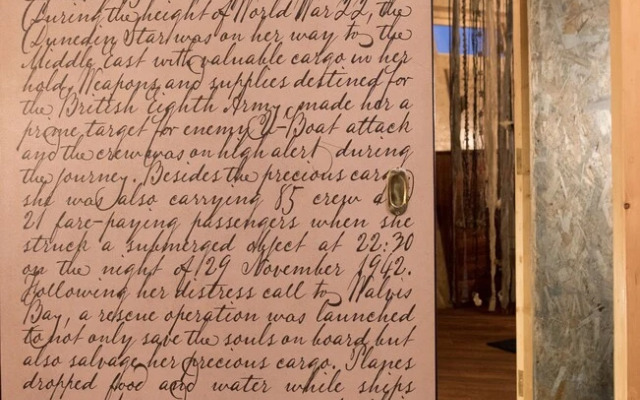 During the height of World War 22, the
Dunedin Star was on her way to the
Middle East with valuable cargo in her
hold. Weapons and supplies destined for
the British Eighth Army, made her a
prime target for enemy U-Boat attack
and the crew was on high alert during
the journey. Besides the precious
she was also carrying 85 crew
21 fare-paying passengers when she
struck a submerged object at 22:30
on the night of 29 November 1942.
Following her distress call to Walvis
Bay, a rescue operation was launched
to not only save the souls on board, but
also salvage her precious cargo. Planes
dropped food and water while ships